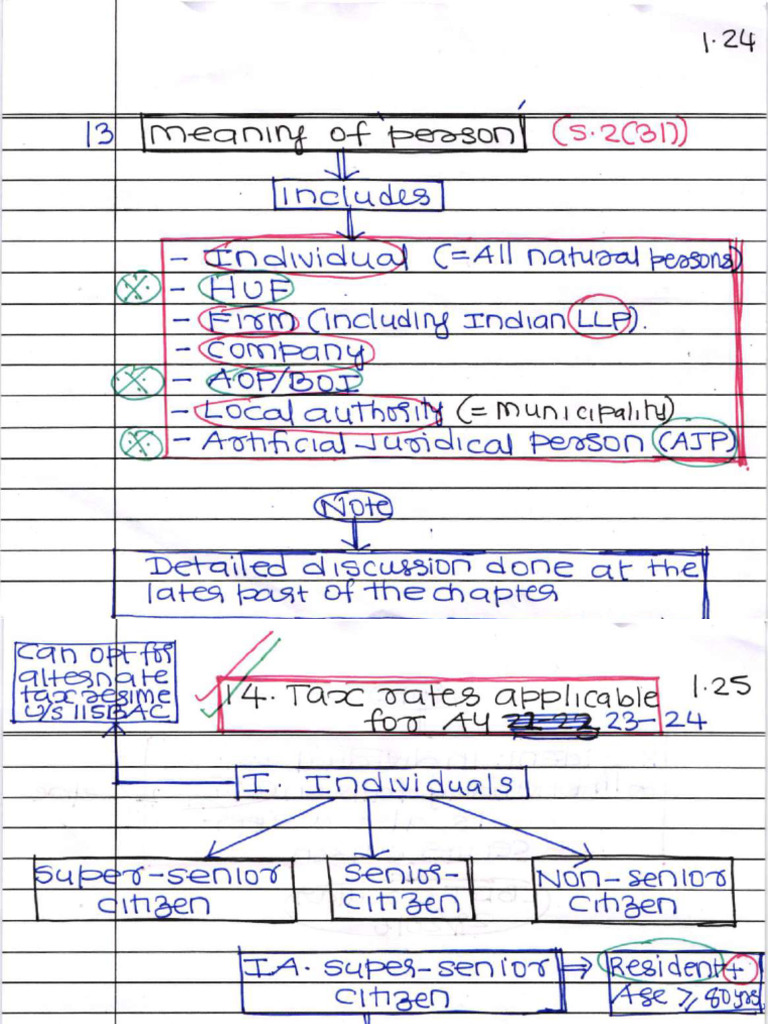 1.24
13 Meaning of person (S.2(31))
Includes
- Individual (=All natural persons)
- HUF
- Firm (including Indian LLP).
- Company
- AOP/BOI
- Local authority (= Municipality)
- Artificial Juridical person (AJP)
Note
Detailed discussion done at the
later part of the chapter
Can opt for
alternate
tax regime
u/s 115BAC
14. Tax rates applicable
for AY 23-24
1.25
I. Individuals
Super-senior
citizen
Senior-
citizen
Non-senior
citizen
IA. Super-senior
citizen
⇒ Resident +
Age ≥ 80 yrs